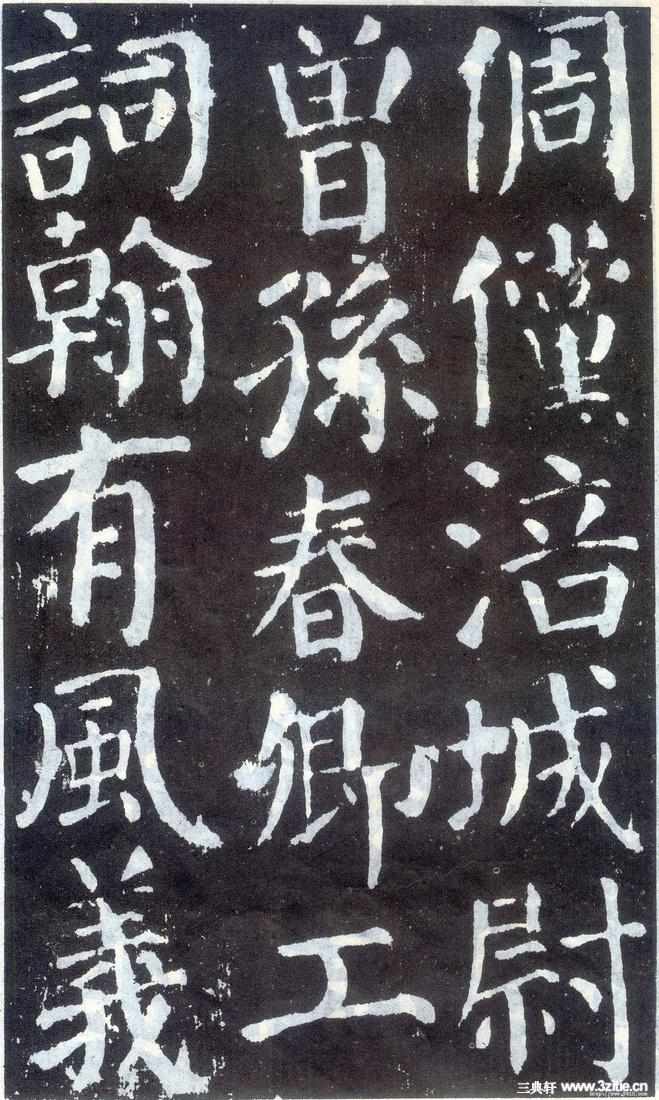 倜儻涪城尉
曾孫春卿工
詞翰有風義
三典轩 www.3zitie.cn